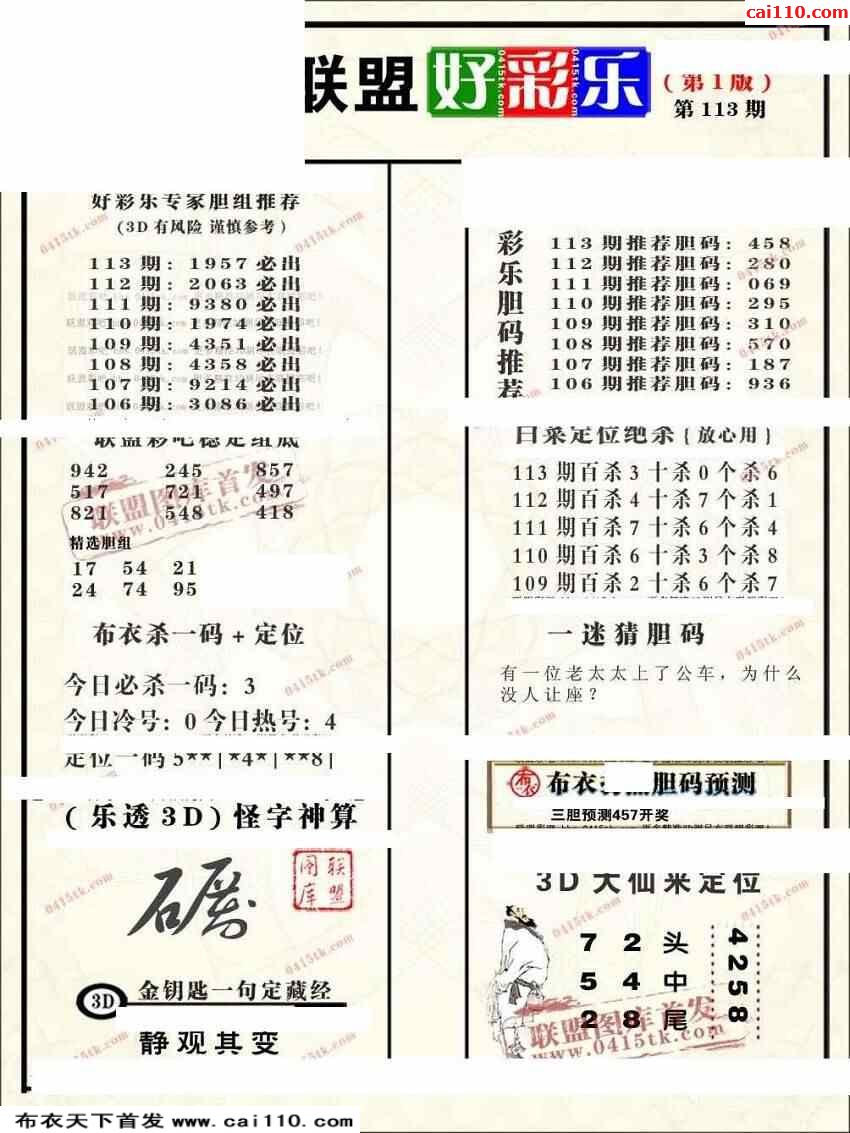 cai110.com
联盟好彩乐
(第1版)
第113期
好彩乐专家胆组推荐
(3D有风险 谨慎参考)
113期: 1957必出
112期: 2063必出
111期: 9380必出
110期: 1974必出
109期: 4351必出
108期: 4358必出
107期: 9214必出
106期: 3086必出
联盟彩吧稳定组底
942 245 857
517 721 497
821 548 418
联盟图库首发
www.0415tk.com
精选胆组
17 54 21
24 74 95
布衣杀一码+定位
今日必杀一码: 3
今日冷号: 0 今日热号: 4
定位一码 5**|*4*|**8|
(乐透3D)怪字神算
联盟图库
3D 金钥匙一句定藏经
静观其变
彩乐胆码推荐
113期推荐胆码: 458
112期推荐胆码: 280
111期推荐胆码: 069
110期推荐胆码: 295
109期推荐胆码: 310
108期推荐胆码: 570
107期推荐胆码: 187
106期推荐胆码: 936
白菜定位绝杀{放心用}
113期百杀3十杀0个杀6
112期百杀4十杀7个杀1
111期百杀7十杀6个杀4
110期百杀6十杀3个杀8
109期百杀2十杀6个杀7
一迷猜胆码
有一位老太太上了公车，为什么
没人让座？
布衣 胆码预测
三胆预测457开奖
3D大仙来定位
7 2 头
5 4 中
2 8 尾
4258
联盟图库首发
www.0415tk.com
布衣天下首发 www.cai110.com